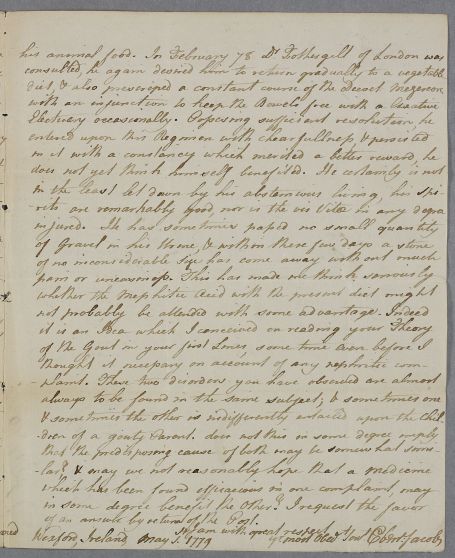 his animal food. In February 78 Dr. Fothergill of London was
consulted, he again desired him to return gradually to a vegetable
diet, & also prescribed a constant course of the Decoct Mezereon
with an injunction to keep the Bowels free with a
Electuary occasionally. Possessing sufficient resolution, he
entered upon this Regimen with chearfullness & persisted
in it with a constancy which merited a better reward, he
does not yet think himself benefited. He certainly is not
in the least let down by his abstemious living, his Spi-
rits are remarkably good, nor is the vis Vitæ in any degree
injured. He has sometimes passed no small quantity
of gravel in his Urine, & within these few days a stone
of no inconsiderable size has come away without much
pain or uneasiness. This has made me think seriously
whether the Mephitic Acid with the present diet might
not probably be attended with some advantage. Indeed
it is an Idea which I conceived on reading your Theory
of the Gout in your first Lines some time even before I
thought it necessary on account of any nephritic com-
plaint. These two disorders you have observed are almost
always to be found in the same subject, & sometimes one
& sometimes the other is indifferently entailed upon the Chil-
dren of a gouty Parent. does not this in some degree imply
that the predisposing cause of both may be somewhat simi-
lar? & may we not reasonably hope that a medicine
which has been found efficacious in one complaint, may
in some degree benefit the other? I request the favor
of an answer by return of the Post.
I am with great respect
Wexford Ireland May 1. 1779 yr most Obed. Servt Ebenr. Jacob